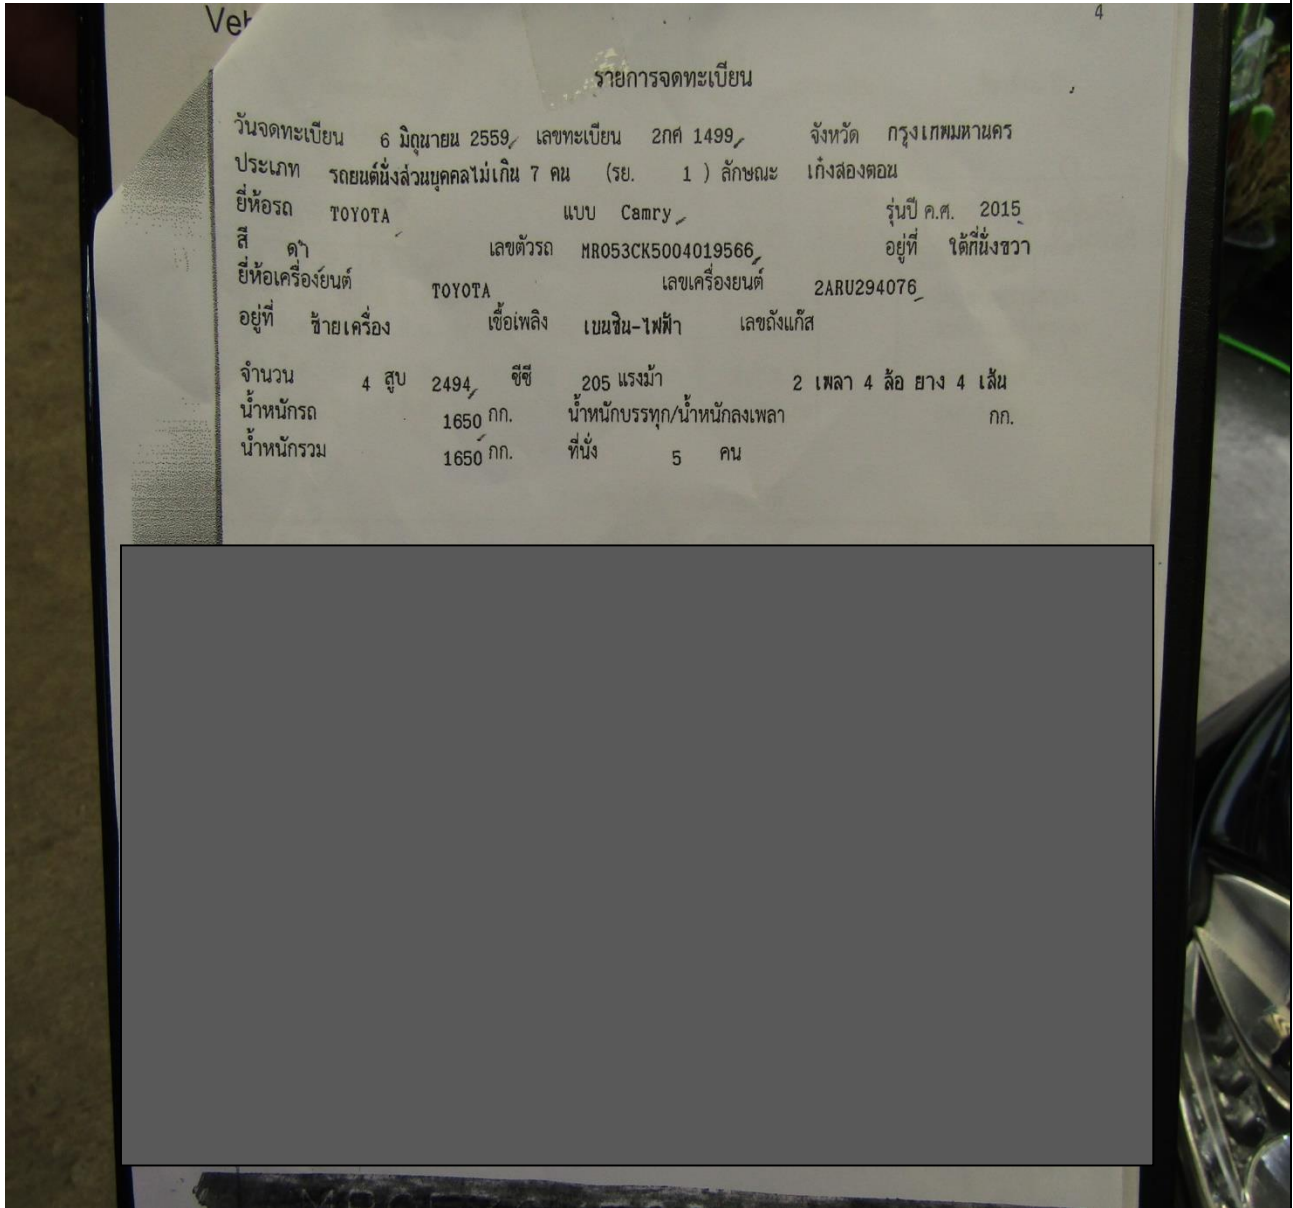 4
รายการจดทะเบียน
วันจดทะเบียน 6 มิถุนายน 2559 เลขทะเบียน 2กศ 1499 จังหวัด กรุงเทพมหานคร
ประเภท รถยนต์นั่งส่วนบุคคลไม่เกิน 7 คน (รย. 1 ) ลักษณะ เก๋งสองตอน
ยี่ห้อรถ TOYOTA แบบ Camry รุ่นปี ค.ศ. 2015
สี ดำ เลขตัวรถ MR053CK5004019566 อยู่ที่ ใต้ที่นั่งขวา
ยี่ห้อเครื่องยนต์ TOYOTA เลขเครื่องยนต์ 2ARU294076
อยู่ที่ ซ้ายเครื่อง เชื้อเพลิง เบนซิน-ไฟฟ้า เลขถังแก๊ส
จำนวน 4 สูบ 2494 ซีซี 205 แรงม้า 2 เพลา 4 ล้อ ยาง 4 เส้น
น้ำหนักรถ 1650 กก. น้ำหนักบรรทุก/น้ำหนักลงเพลา กก.
น้ำหนักรวม 1650 กก. ที่นั่ง 5 คน